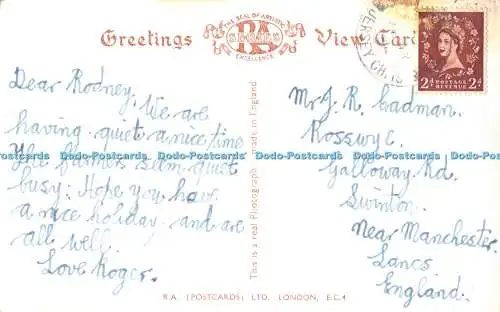 THE SEAL OF ARTISTIC
Greetings RA View Card
EXCELLENCE
JERSEY CH. IS
2d POSTAGE REVENUE 2d
Dear Rodney, We are
having quiet a nice time
The farmers seem quiet
busy. Hope you have
a nice holiday and are
all well.
Love Roger.
This is a real Photograph made in England
Mr J. R. Cadman.
Galloway Rd.
Swinton.
Near Manchester.
Lancs
England.
Dodo-Postcards Dodo-Postcards Dodo-Postcards Dodo-Postcards Dodo-Postcards
R.A. (POSTCARDS) LTD. LONDON, E.C.4